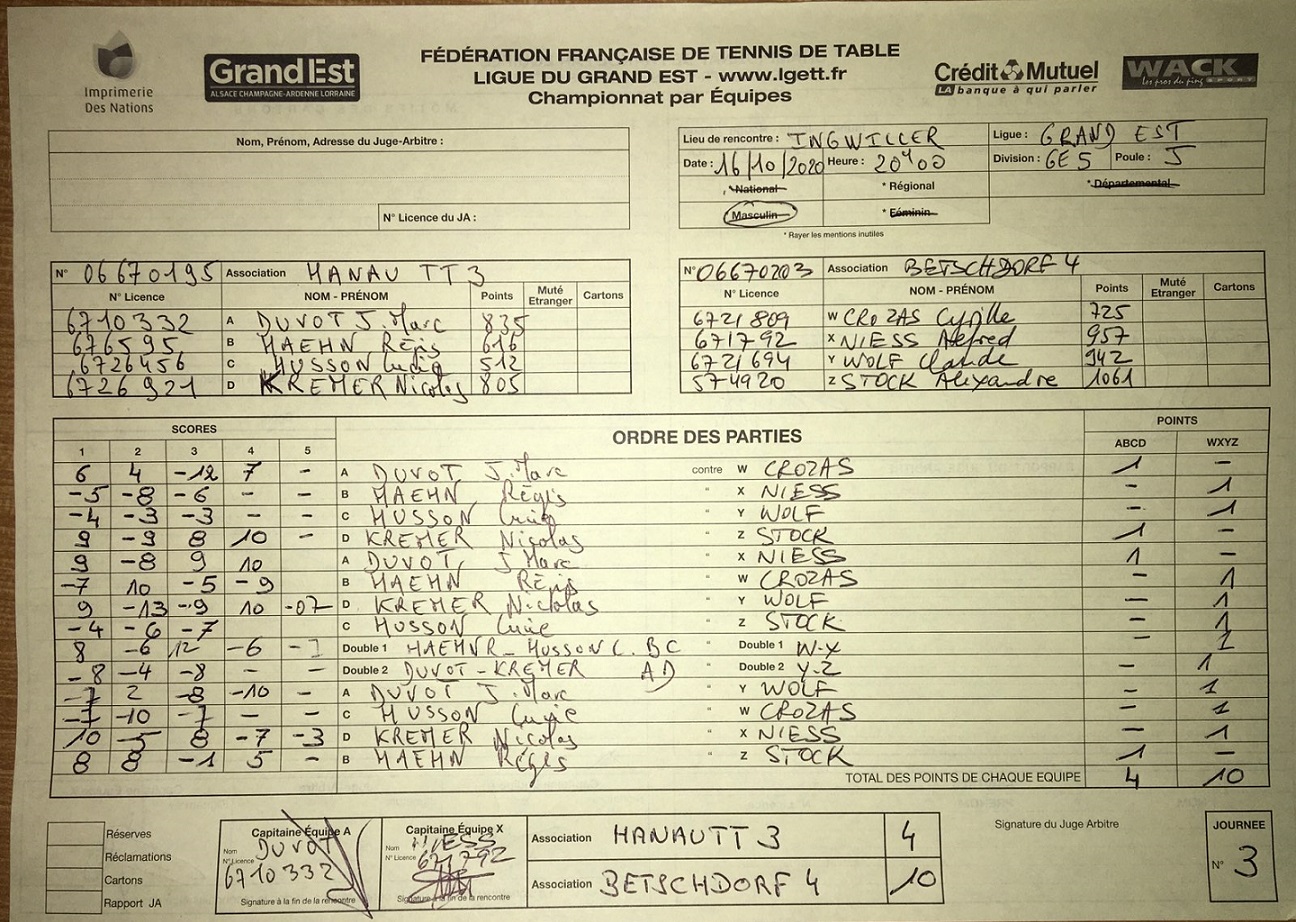 Imprimerie
Des Nations
Grand Est
ALSACE CHAMPAGNE-ARDENNE LORRAINE
FÉDÉRATION FRANÇAISE DE TENNIS DE TABLE
LIGUE DU GRAND EST - www.lgett.fr
Championnat par Équipes
Crédit Mutuel
LA banque à qui parler
WACK
SPORT
les pros du ping
Nom, Prénom, Adresse du Juge-Arbitre :
N° Licence du JA :
Lieu de rencontre : INGWILLER Ligue : GRAND EST
Date : 16/10/2020 Heure : 20H00 Division : GE5 Poule : J
* National * Régional * Départemental
Masculin * Féminin
* Rayer les mentions inutiles
N° 06670195 Association HANAU TT 3
N° Licence NOM - PRÉNOM Points Muté Etranger Cartons
6710332 A DUVOT J. Marc 835
676595 B HAEHN Régis 616
6726456 C HUSSON Lucie 512
6726921 D KREMER Nicolas 805
N° 06670203 Association BETSCHDORF 4
N° Licence NOM - PRÉNOM Points Muté Etranger Cartons
6721809 W CROZAS Cyrille 725
671792 X NIESS Alfred 957
6721694 Y WOLF Claude 942
574920 Z STOCK Alexandre 1061
SCORES ORDRE DES PARTIES POINTS
1 2 3 4 5 ABCD WXYZ
6 4 -12 7 - A DUVOT J. Marc contre W CROZAS 1 -
-5 -8 -6 - - B HAEHN Régis " X NIESS - 1
-4 -3 -3 - - C HUSSON Lucie " Y WOLF - 1
9 -9 8 10 - D KREMER Nicolas " Z STOCK 1 -
9 -8 9 10 A DUVOT J Marc " X NIESS 1 -
-7 10 -5 -9 B HAEHN Régis " W CROZAS - 1
9 -13 -9 10 -07 D KREMER Nicolas " Y WOLF - 1
-4 -6 -7 C HUSSON Lucie " Z STOCK - 1
8 -6 12 -6 Double 1 HAEHN R - HUSSON C. BC " Double 1 W-X - 1
-8 -4 -8 - - Double 2 DUVOT - KREMER AD " Double 2 Y-Z - 1
-7 2 -8 -10 - A DUVOT J. Marc " Y WOLF - 1
-7 -10 -7 - - C HUSSON Lucie " W CROZAS - 1
10 -5 8 -7 -3 D KREMER Nicolas " X NIESS - 1
8 8 -1 5 - B HAEHN Régis " Z STOCK 1 -
TOTAL DES POINTS DE CHAQUE EQUIPE 4 10
Réserves
Réclamations
Cartons
Rapport JA
Capitaine Équipe A
Nom DUVOT
N° Licence 6710332
Signature à la fin de la rencontre
Capitaine Équipe X
Nom NIESS
N° Licence 671792
Signature à la fin de la rencontre
Association HANAU TT 3 4
Association BETSCHDORF 4 10
Signature du Juge Arbitre
JOURNEE
N° 3